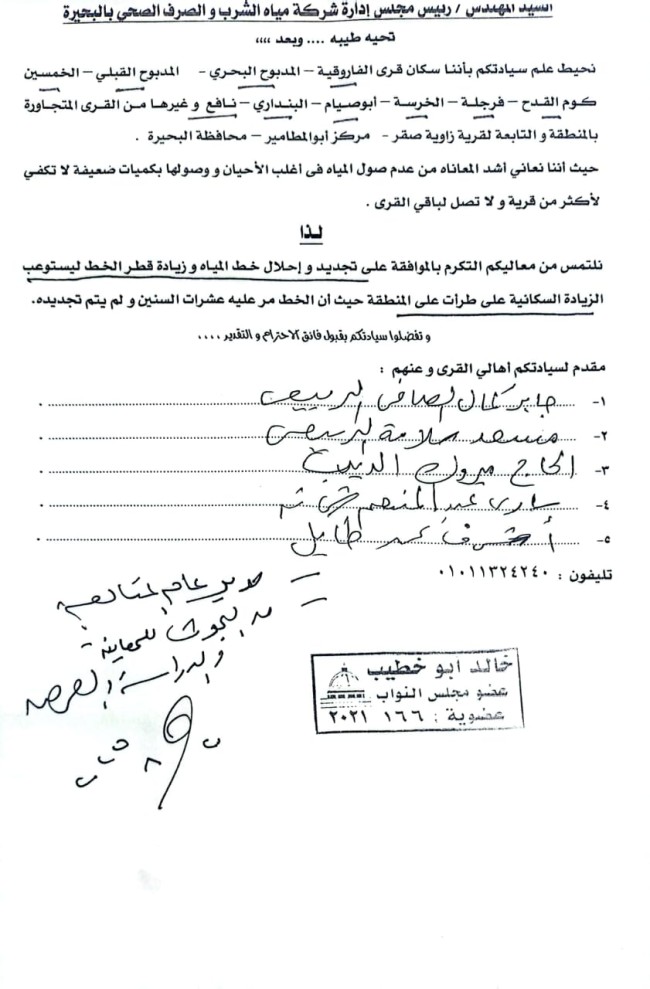 السيد المهندس / رئيس مجلس إدارة شركة مياه الشرب و الصرف الصحي بالبحيرة
تحيه طيبه .... وبعد ,,,,
نحيط علم سيادتكم بأننا سكان قرى الفاروقية – المدبوح البحري - المدبوح القبلي – الخمسين
كوم القدح – فرجلة – الخرسة – أبوصيام – البنداري – نافع و غيرها من القرى المتجاورة
بالمنطقة و التابعة لقرية زاوية صقر - مركز أبوالمطامير – محافظة البحيرة .
حيث أننا نعاني أشد المعاناه من عدم صول المياه فى أغلب الأحيان و وصولها بكميات ضعيفة لا تكفي
لأكثر من قرية و لا تصل لباقي القرى .
لذا
نلتمس من معاليكم التكرم بالموافقة على تجديد و إحلال خط المياه و زيادة قطر الخط ليستوعب
الزيادة السكانية على طرأت على المنطقة حيث أن الخط مر عليه عشرات السنين و لم يتم تجديده.
و تفضلوا سيادتكم بقبول فائق الاحترام و التقدير ....
مقدم لسيادتكم أهالي القرى و عنهم :
١- جابر كمال الصافى
٢- مسعد سلامة
٣- الحاج مبروك الديب
٤- عبد المنعم
٥- أشرف محمد طايل
تليفون : ٠١٠١١٣٢٤٢٤٠
مدير عام
للمعاينة
والدراسة
خالد ابو خطيب
عضو مجلس النواب
عضوية : ١٦٦ ٢٠٢١